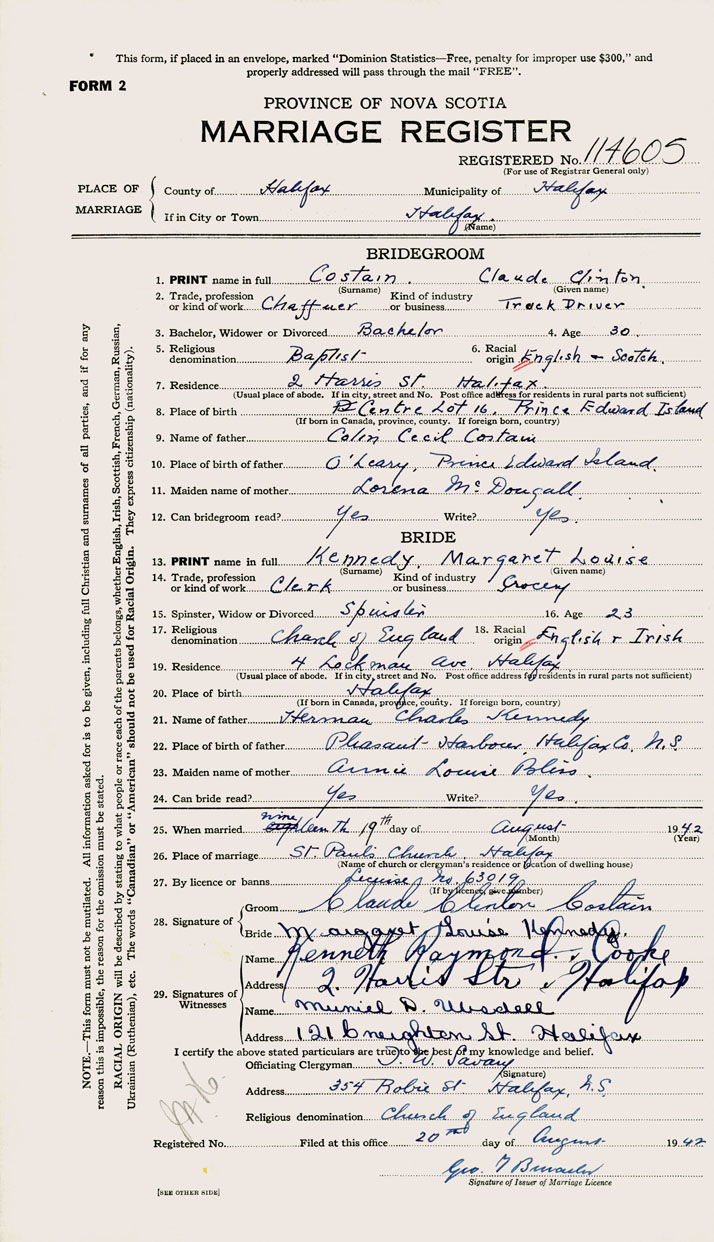 This form, if placed in an envelope, marked "Dominion Statistics—Free, penalty for improper use $300," and
properly addressed will pass through the mail "FREE".
FORM 2
PROVINCE OF NOVA SCOTIA
MARRIAGE REGISTER
REGISTERED No. 114605
(For use of Registrar General only)
PLACE OF MARRIAGE
County of Halifax Municipality of Halifax
If in City or Town Halifax.
(Name)
BRIDEGROOM
1. PRINT name in full Costain. Claude Clinton
(Surname) (Given name)
2. Trade, profession or kind of work Chaffuer Kind of industry or business Truck Driver
3. Bachelor, Widower or Divorced Bachelor 4. Age 30.
5. Religious denomination Baptist 6. Racial origin English & Scotch.
7. Residence 2 Harris St. Halifax.
(Usual place of abode. If in city, street and No. Post office address for residents in rural parts not sufficient)
8. Place of birth Centre Lot 16, Prince Edward Island
(If born in Canada, province, county. If foreign born, country)
9. Name of father Colin Cecil Costain
10. Place of birth of father O'Leary, Prince Edward Island.
11. Maiden name of mother Lorena McDougall.
12. Can bridegroom read? Yes Write? Yes.
BRIDE
13. PRINT name in full Kennedy, Margaret Louise
(Surname) (Given name)
14. Trade, profession or kind of work Clerk Kind of industry or business Grocery
15. Spinster, Widow or Divorced Spinster 16. Age 23
17. Religious denomination Church of England 18. Racial origin English & Irish
19. Residence 4 Lockman Ave, Halifax
(Usual place of abode. If in city, street and No. Post office address for residents in rural parts not sufficient)
20. Place of birth Halifax
(If born in Canada, province, county. If foreign born, country)
21. Name of father Herman Charles Kennedy
22. Place of birth of father Pleasant Harbour, Halifax Co. N.S.
23. Maiden name of mother Annie Louise Bliss.
24. Can bride read? Yes Write? Yes.
25. When married nineteenth 19th day of August 1942
(Month) (Year)
26. Place of marriage St. Paul's Church, Halifax
(Name of church or clergyman's residence or location of dwelling house)
27. By licence or banns License No. 63019
(If by licence, give number)
28. Signature of
Groom Claude Clinton Costain
Bride Margaret Louise Kennedy.
29. Signatures of Witnesses
Name Kenneth Raymond Cooke
Address 2 Harris Str, Halifax
Name Muriel D.
Address 121 Creighton St. Halifax
I certify the above stated particulars are true to the best of my knowledge and belief.
Officiating Clergyman T. W. Savary
(Signature)
Address 354 Robie St Halifax, N.S.
Religious denomination Church of England
Registered No. Filed at this office 20th day of August 1942
Geo. T
Signature of Issuer of Marriage Licence
[SEE OTHER SIDE]
NOTE.—This form must not be mutilated. All information asked for is to be given, including full Christian and surnames of all parties, and if for any
reason this is impossible, the reason for the omission must be stated.
RACIAL ORIGIN will be described by stating to what people or race each of the parents belongs, whether English, Irish, Scottish, French, German, Russian,
Ukrainian (Ruthenian), etc. The words "Canadian" or "American" should not be used for Racial Origin. They express citizenship (nationality).